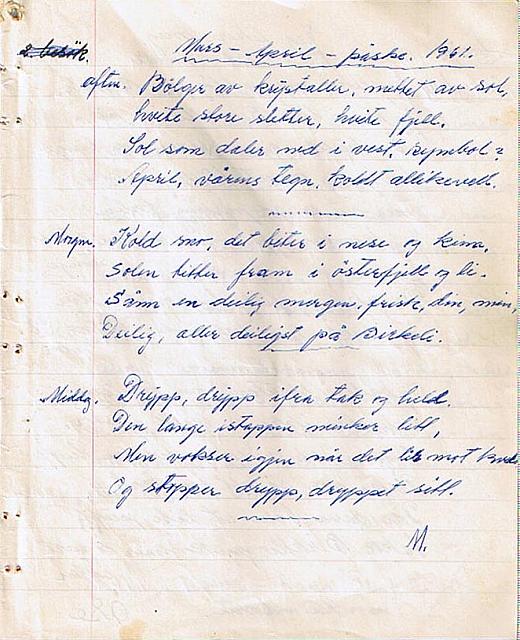 2. besök. Mars - April - påske. 1961.
aften. Bölger av krystaller, mettet av sol,
hvite store sletter, hvite fjell.
Sol som daler ned i vest, symbol?
April, vårens tegn, koldt allikevell.
Morgen. Kold sno, det biter i nese og kinn,
Solen titter fram i österfjell og li.
Sånn en deilig morgen, frisk, din, min,
Deilig, aller deiligst på Birkeli.
Middag. Drypp, drypp ifra tak og held.
Den lange istappen minker litt,
Men vokser igjen når det lir mot kveld
Og stopper drypp, dryppet sitt.
M.